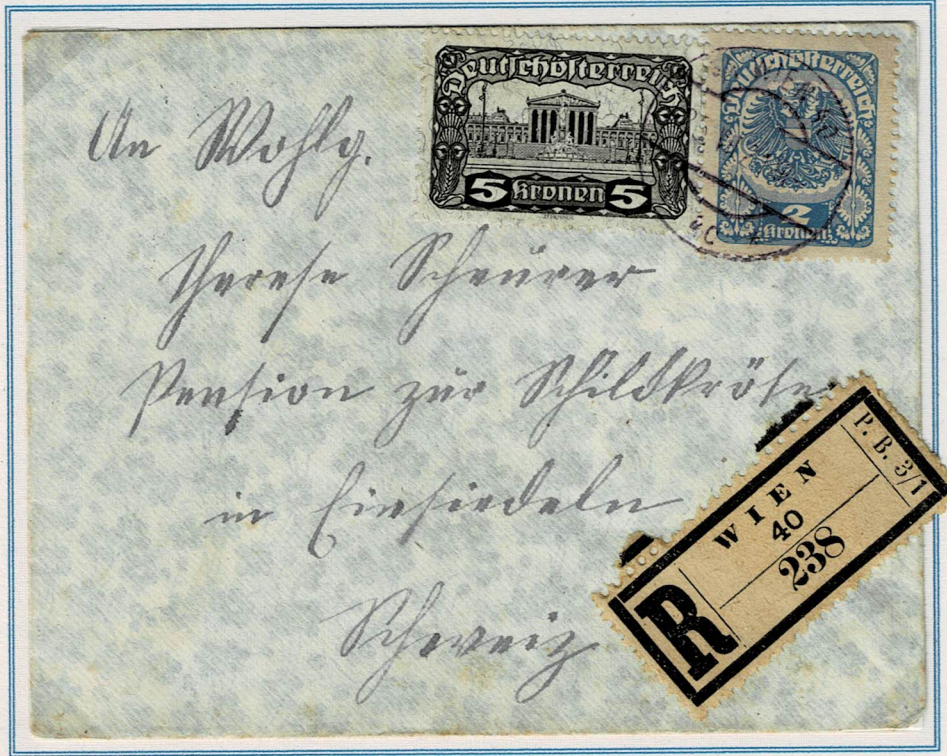 Deutschösterreich
5 Kronen 5
Deutschösterreich
2
Kronen
An Wohlg.
Therese Scheurer
Pension zur Schildkröte
in Einsiedeln
Schweiz
P. B. 3/1
WIEN
40
238
R